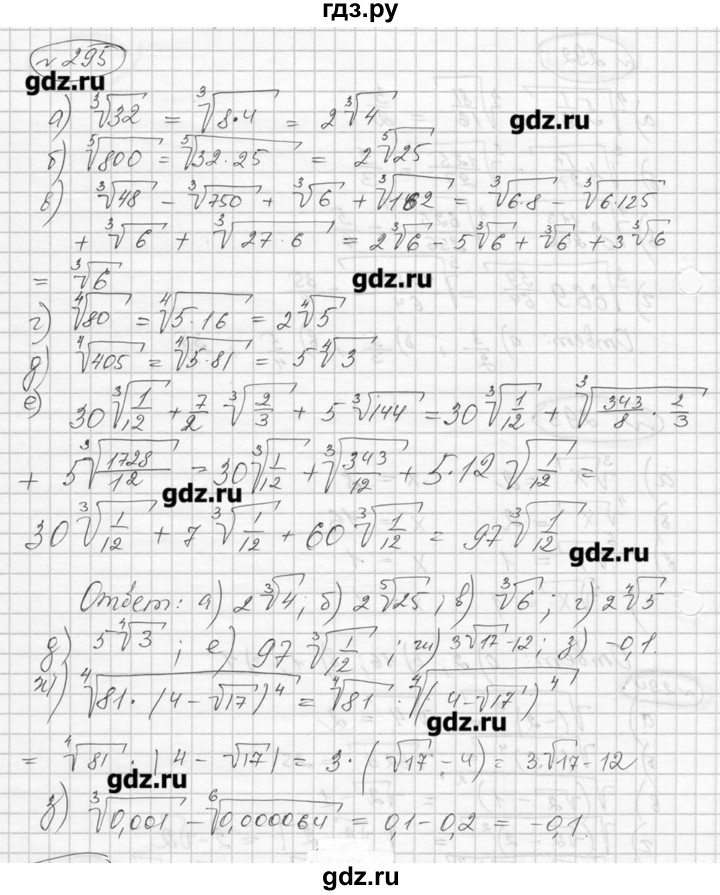 гдз.ру
№ 295
gdz.ru
а) ∛32 = ∛(8·4) = 2∛4
gdz.ru
б) ⁵√800 = ⁵√(32·25) = 2⁵√25
в) ∛48 − ∛750 + ∛6 + ∛162 = ∛(6·8) − ∛(6·125)
+ ∛6 + ∛(27·6) = 2∛6 − 5∛6 + ∛6 + 3∛6
= ∛6
gdz.ru
г) ⁴√80 = ⁴√(5·16) = 2⁴√5
д) ⁴√405 = ⁴√(5·81) = 5⁴√3
е) 30∛(1/12) + 7/2 ∛(2/3) + 5∛144 = 30∛(1/12) + ∛(343/8 · 2/3)
+ 5∛(1728/12) = 30∛(1/12) + ∛(343/12) + 5·12√(1/12) =
gdz.ru
30∛(1/12) + 7∛(1/12) + 60∛(1/12) = 97∛(1/12)
gdz.ru
Ответ: а) 2∛4; б) 2⁵√25; в) ∛6; г) 2⁴√5
д) 5⁴√3; е) 97∛(1/12); ж) 3√17-12; з) −0,1.
ж) ⁴√(81·(4−√17)⁴) = ⁴√81 · ⁴√((4−√17)⁴)
gdz.ru
= ⁴√81 · |4−√17| = 3·(√17−4) = 3·√17−12
gdz.ru
з) ∛0,001 − ⁶√0,000064 = 0,1−0,2 = −0,1.
gdz.ru